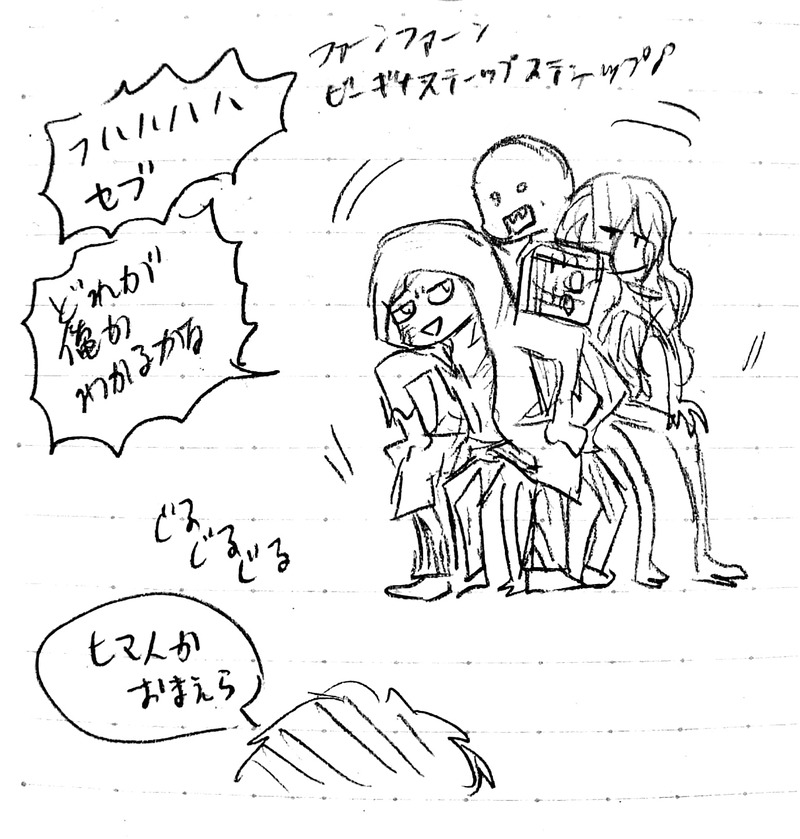 ファーンファーン
ビーギナステーップステーップ♪
フハハハハハ
セブ
どれが
俺か
わかるかな
ぐる
ぐる
ぐる
ヒマ人か
おまえら